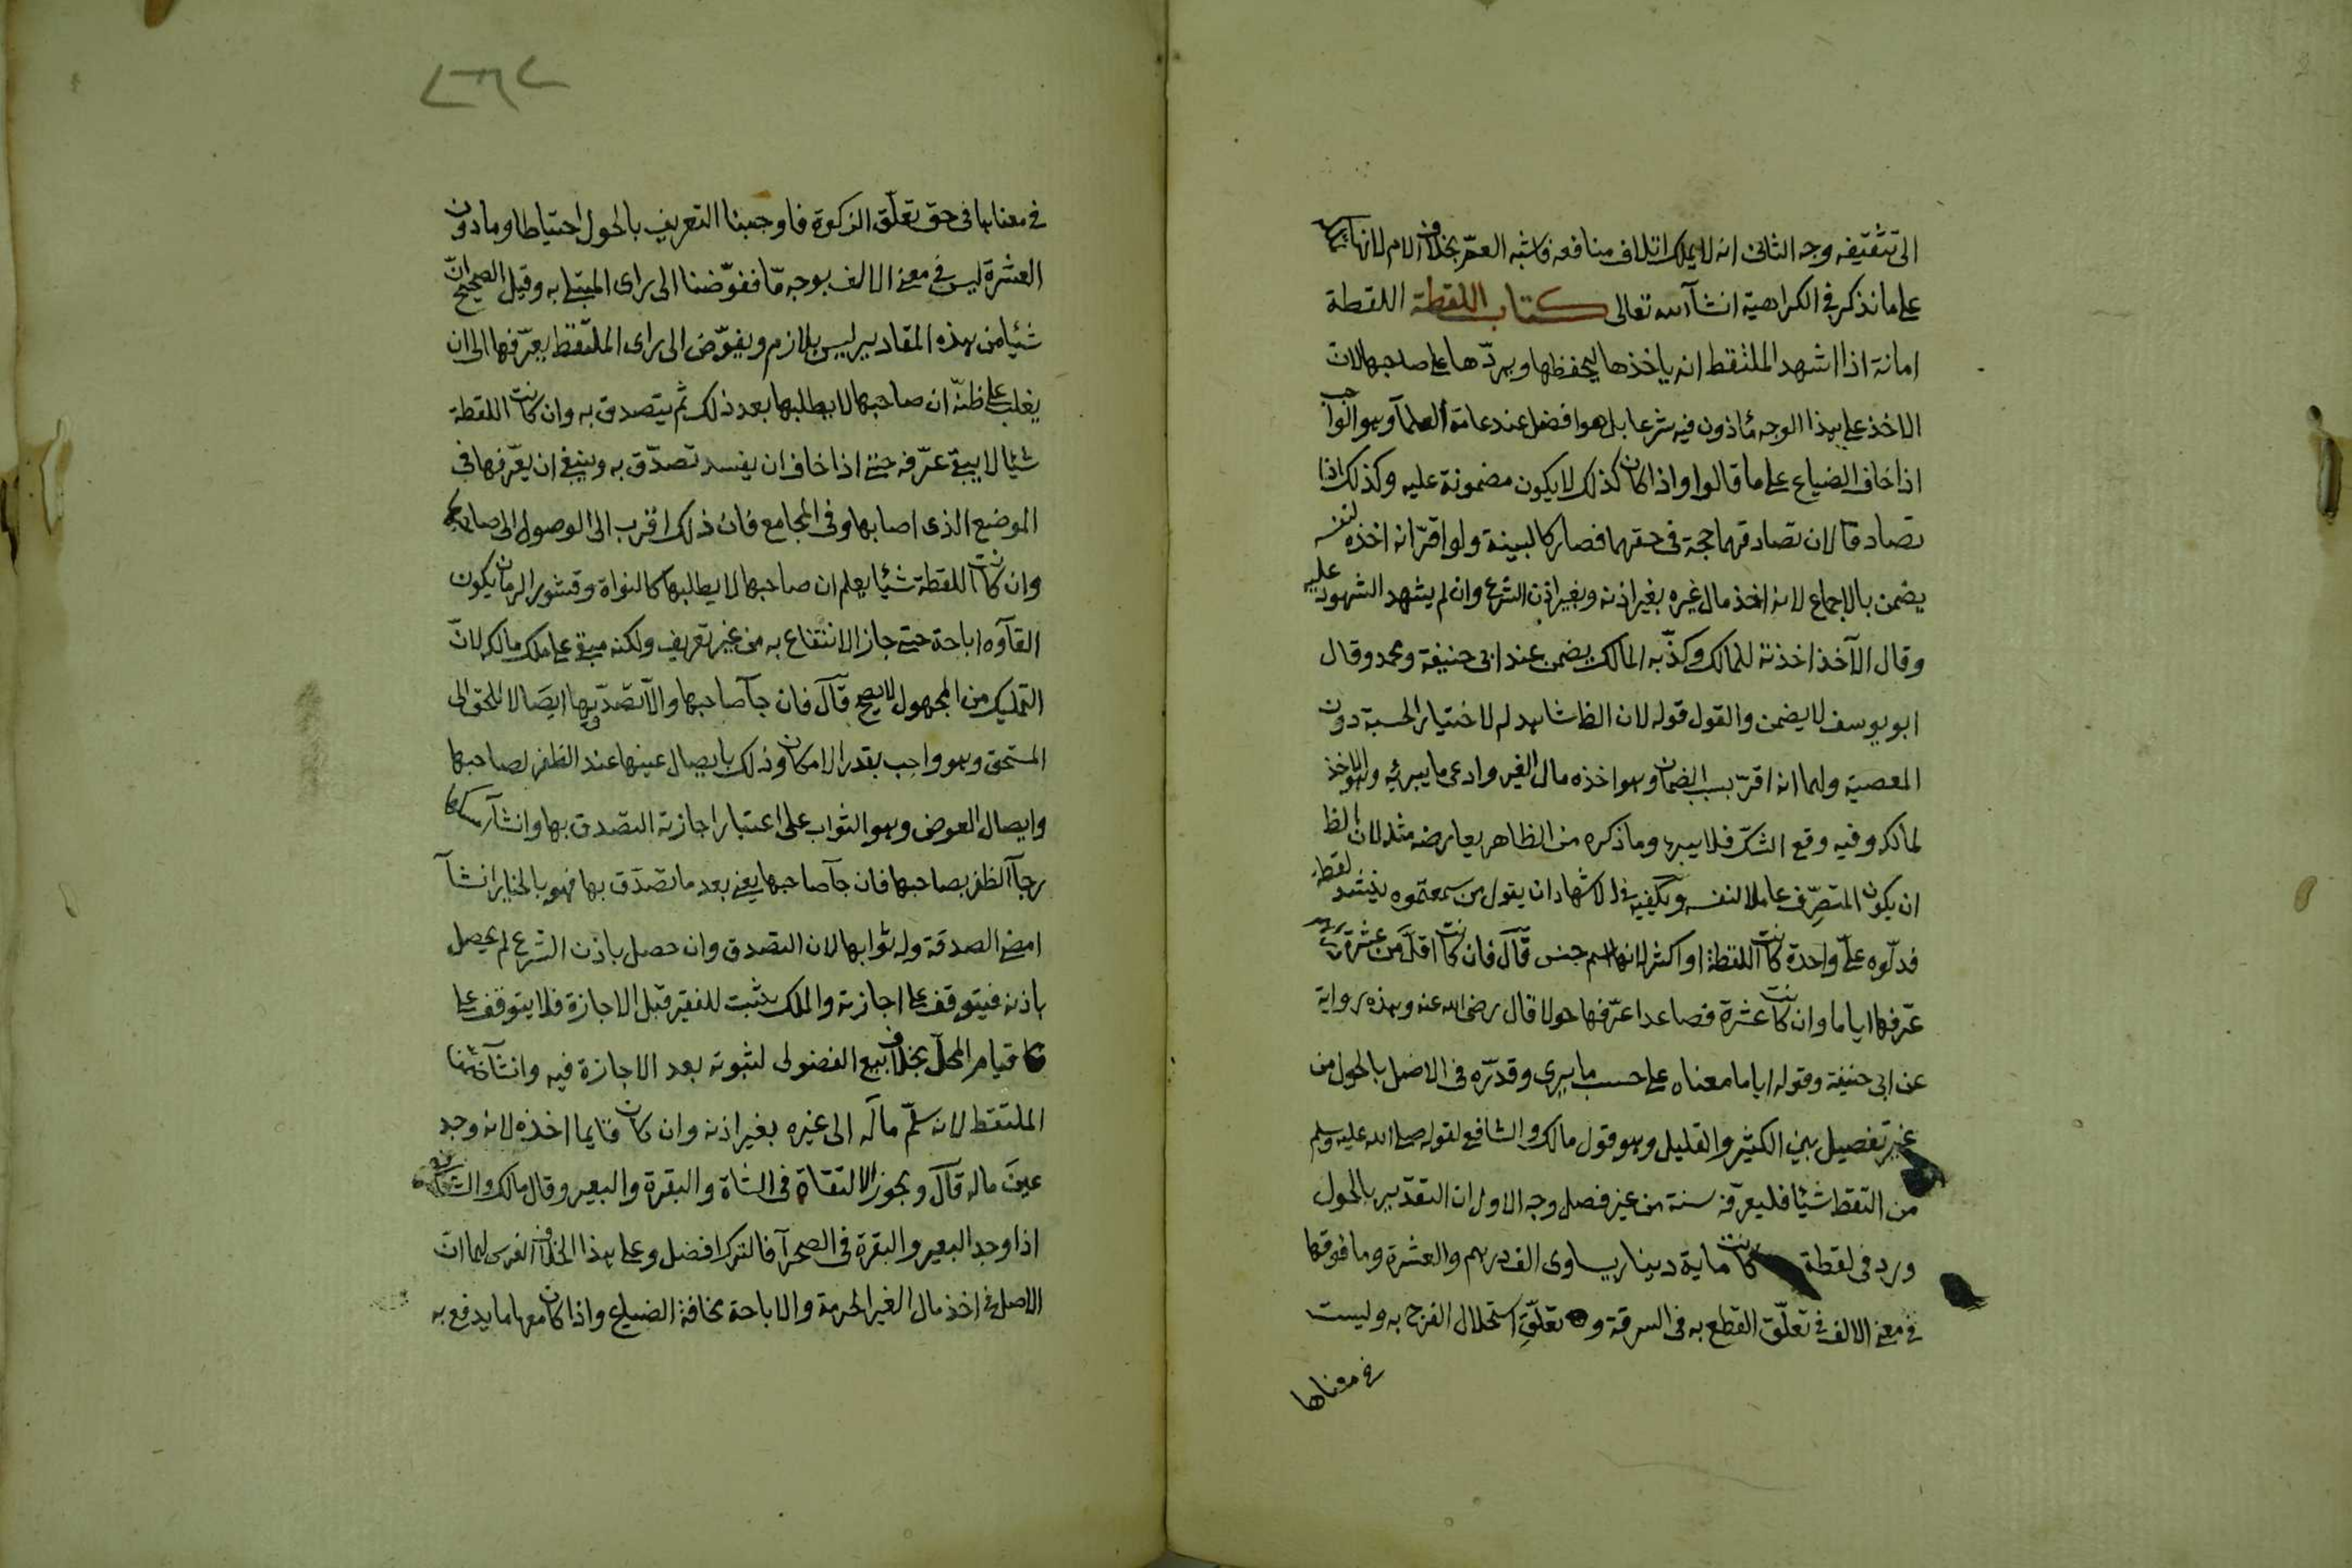 الى تثقيفه وجه الثانى انه لا يملك اتلاف منافعه فاشبه العم بخلاف الام لانها تملكه
على ما نذكر فى الكراهية انشآ الله تعالى كتاب اللقطة اللقطة
امانة اذا اشهد الملتقط انه ياخذها ليحفظها ويردّها على صاحبها لان
الاخذ على هذا الوجه مأذون فيه شرعا بل هو افضل عند عامة العلمآ وهو الواجب
اذا خاف الضياع على ما قالوا واذا كان كذلك لا يكون مضمونة عليه وكذلك اذا
تصادقا لان تصادقهما حجة فى حقهما فصار كالبينة ولو اقرّ انه اخذه لنفسه
يضمن بالاجماع لانه اخذ مال غيره بغير اذنه وبغير اذن الشرع وان لم يشهد الشهود عليه
وقال الآخذ اخذته للمالك وكذّبه المالك يضمن عند ابى حنيفة ومحمد وقال
ابو يوسف لا يضمن والقول قوله لان الظ شاهد له لاختيار الحسبة دون
المعصية ولهما انه اقرّ بسبب الضمان وهو اخذه مال الغير وادعى ما يبرئه وهو الاخذ
لمالكه وفيه وقع الشكّ فلا يبرء وما ذكره من الظاهر يعارضه مثله لان الظ
ان يكون المتصرّف عاملا لنفسه ويكفيه فى الاشهاد ان يقول من سمعتموه ينشد لقطة
فدلّوه علىّ واحدة كانت اللقطة او اكثر لانها اسم جنس قال فان كانت اقلّ من عشرة دراهم
عرّفها اياما وان كانت عشرة فصاعدا عرّفها حولا قال رضى الله عنه وهذه رواية
عن ابى حنيفة وقوله اياما معناه على حسب ما يرى وقدّره فى الاصل بالحول من
غير تفصيل بين الكثير والقليل وهو قول مالك والشافعى لقوله صلى الله عليه وسلم
من التقط شيئا فليعرّفه سنة من غير فصل وجه الاول ان التقدير بالحول
ورد فى لقطة كانت ماية دينار يساوى الف درهم والعشرة وما فوقها
فى معنى الالف فى تعلّق القطع به فى السرقة وتعلّق استحلال الفرج به وليست
فى معناها
فى معناها فى حق تعلّق الزكوة فاوجبنا التعريف بالحول احتياطا وما دون
العشرة ليس فى معنى الالف بوجه مّا ففوّضنا الى راى المبتلى به وقيل الصحيح انّ
شيئا من هذه المقادير ليس بلازم ويفوّض الى راى الملتقط يعرّفها الى ان
يغلب على ظنّه ان صاحبها لا يطلبها بعد ذلك ثم يتصدق به وان كانت اللقطة
شيئا لا يبقى عرّفه حتى اذا خاف ان يفسد تصدّق به وينبغى ان يعرّفها فى
الموضع الذى اصابها وفى المجامع فان ذلك اقرب الى الوصول الى صاحبها
وان كانت اللقطة شيئا يعلم ان صاحبها لا يطلبها كالنواة وقشور الرمان يكون
القآوه اباحة حتى جاز الانتفاع به من غير تعريف ولكنه مبقى على ملك مالكه لانّ
التمليك من المجهول لا يصح قال فان جآ صاحبها والا تصدّق بها ايصالا للحق الى
المستحق وهو واجب بقدر الامكان وذلك بايصال عينها عند الظفر لصاحبها
وايصال العوض وهو الثواب على اعتبار اجازته التصدق بها وانشآ امسكها
رجآ الظفر بصاحبها فان جآ صاحبها يعنى بعد ما تصدّق بها فهو بالخيار انشآ
امضى الصدقة وله ثوابها لان التصدق وان حصل باذن الشرع لم يحصل
باذنه فيتوقف على اجازته والملك يثبت للفقير قبل الاجازة فلا يتوقف على
قيام المحلّ بخلاف بيع الفضولى لثبوته بعد الاجازة فيه وانشآ ضمّن
الملتقط لانه سلّم ماله الى غيره بغير اذنه وان كان قايما اخذه لانه وجد
عين ماله قال ويجوز الالتقاة فى الشاة والبقرة والبعير وقال مالك والشافعى
اذا وجد البعير والبقرة فى الصحرآ فالترك افضل وعلى هذا الخلاف الفرس لهما ان
الاصل فى اخذ مال الغير الحرمة والاباحة مخافة الضياع واذا كان معها ما يدفع به